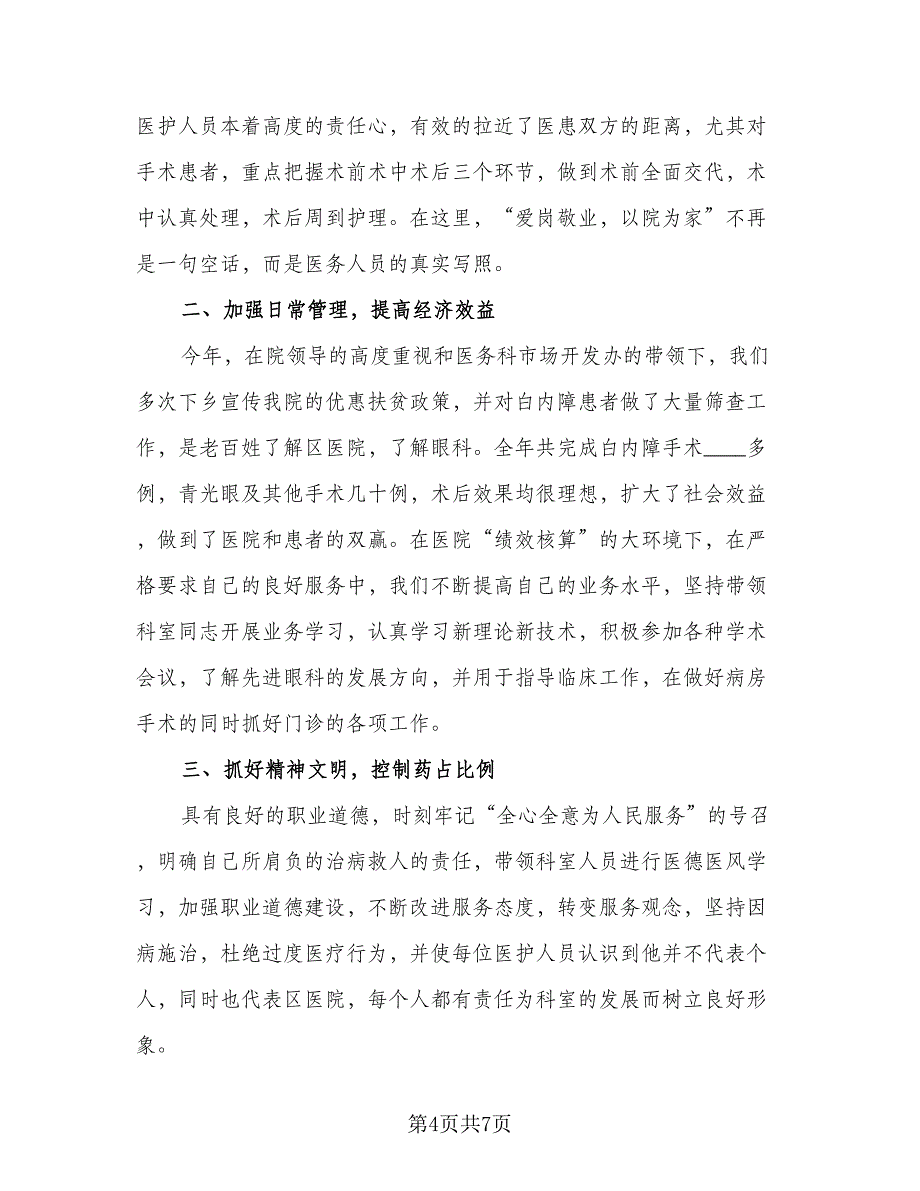 医护人员本着高度的责任心，有效的拉近了医患双方的距离，尤其对
手术患者，重点把握术前术中术后三个环节，做到术前全面交代，术
中认真处理，术后周到护理。在这里，“爱岗敬业，以院为家”不再
是一句空话，而是医务人员的真实写照。
二、加强日常管理，提高经济效益
今年，在院领导的高度重视和医务科市场开发办的带领下，我们
多次下乡宣传我院的优惠扶贫政策，并对白内障患者做了大量筛查工
作，是老百姓了解区医院，了解眼科。全年共完成白内障手术____多
例，青光眼及其他手术几十例，术后效果均很理想，扩大了社会效益
，做到了医院和患者的双赢。在医院“绩效核算”的大环境下，在严
格要求自己的良好服务中，我们不断提高自己的业务水平，坚持带领
科室同志开展业务学习，认真学习新理论新技术，积极参加各种学术
会议，了解先进眼科的发展方向，并用于指导临床工作，在做好病房
手术的同时抓好门诊的各项工作。
三、抓好精神文明，控制药占比例
具有良好的职业道德，时刻牢记“全心全意为人民服务”的号召
，明确自己所肩负的治病救人的责任，带领科室人员进行医德医风学
习，加强职业道德建设，不断改进服务态度，转变服务观念，坚持因
病施治，杜绝过度医疗行为，并使每位医护人员认识到他并不代表个
人，同时也代表区医院，每个人都有责任为科室的发展而树立良好形
象。
第4页共7页